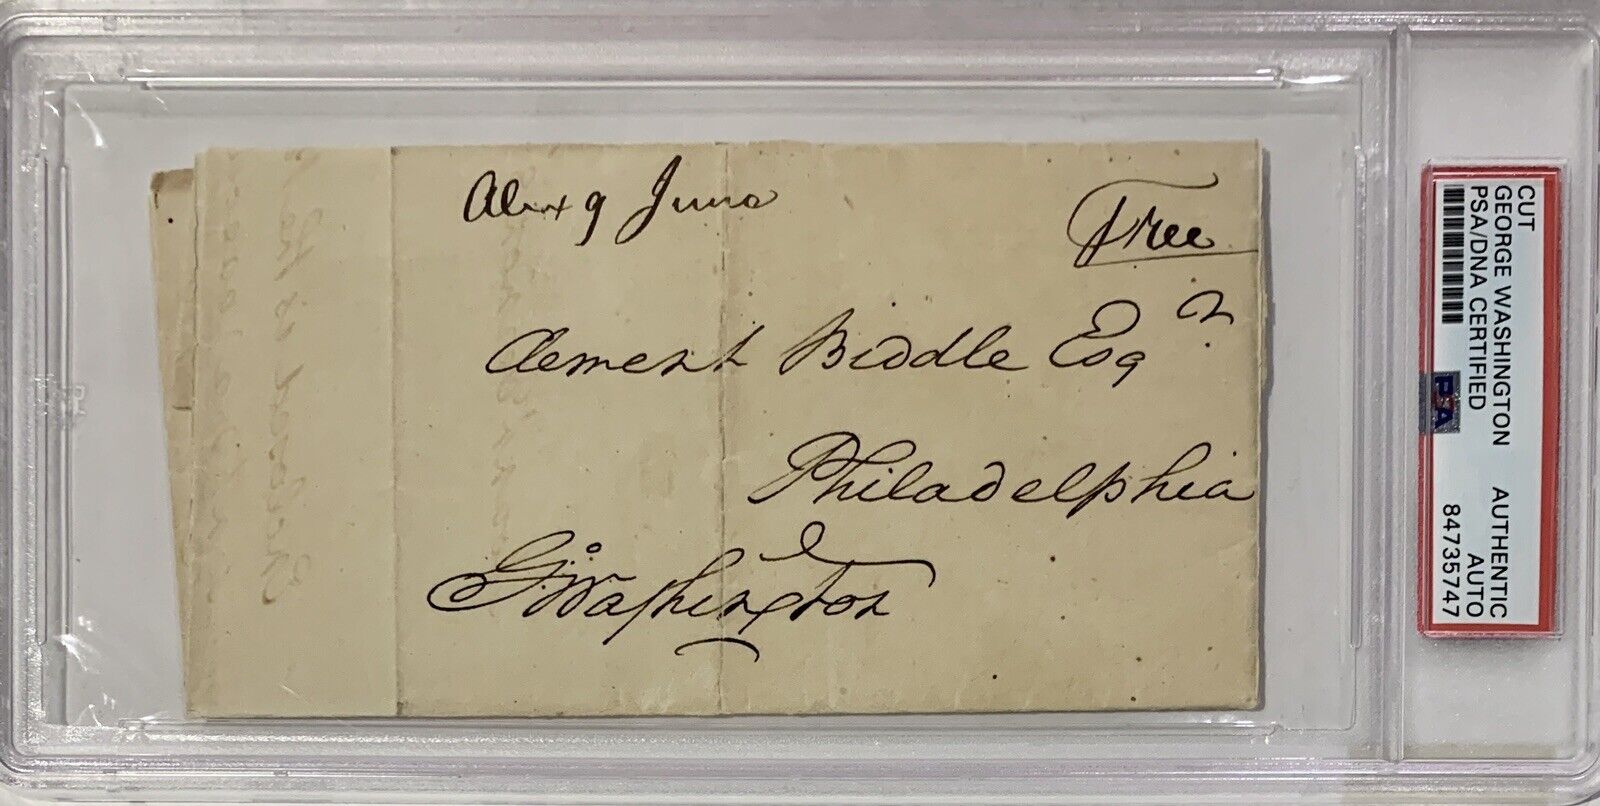 Alexa 9 June
Free
Clement Biddle Esqr.
Philadelphia
G:Washington
CUT
GEORGE WASHINGTON
PSA/DNA CERTIFIED
AUTHENTIC
AUTO
84735747
PSA